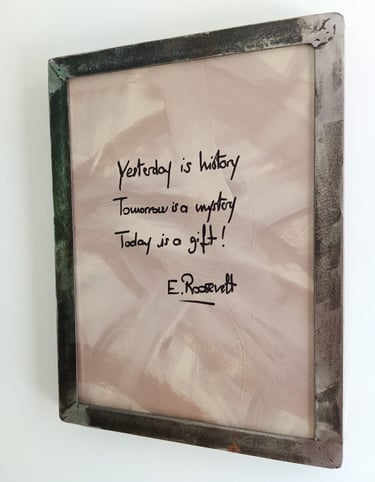 Yesterday is history
Tomorrow is a mystery
Today is a gift!
E. Roosevelt